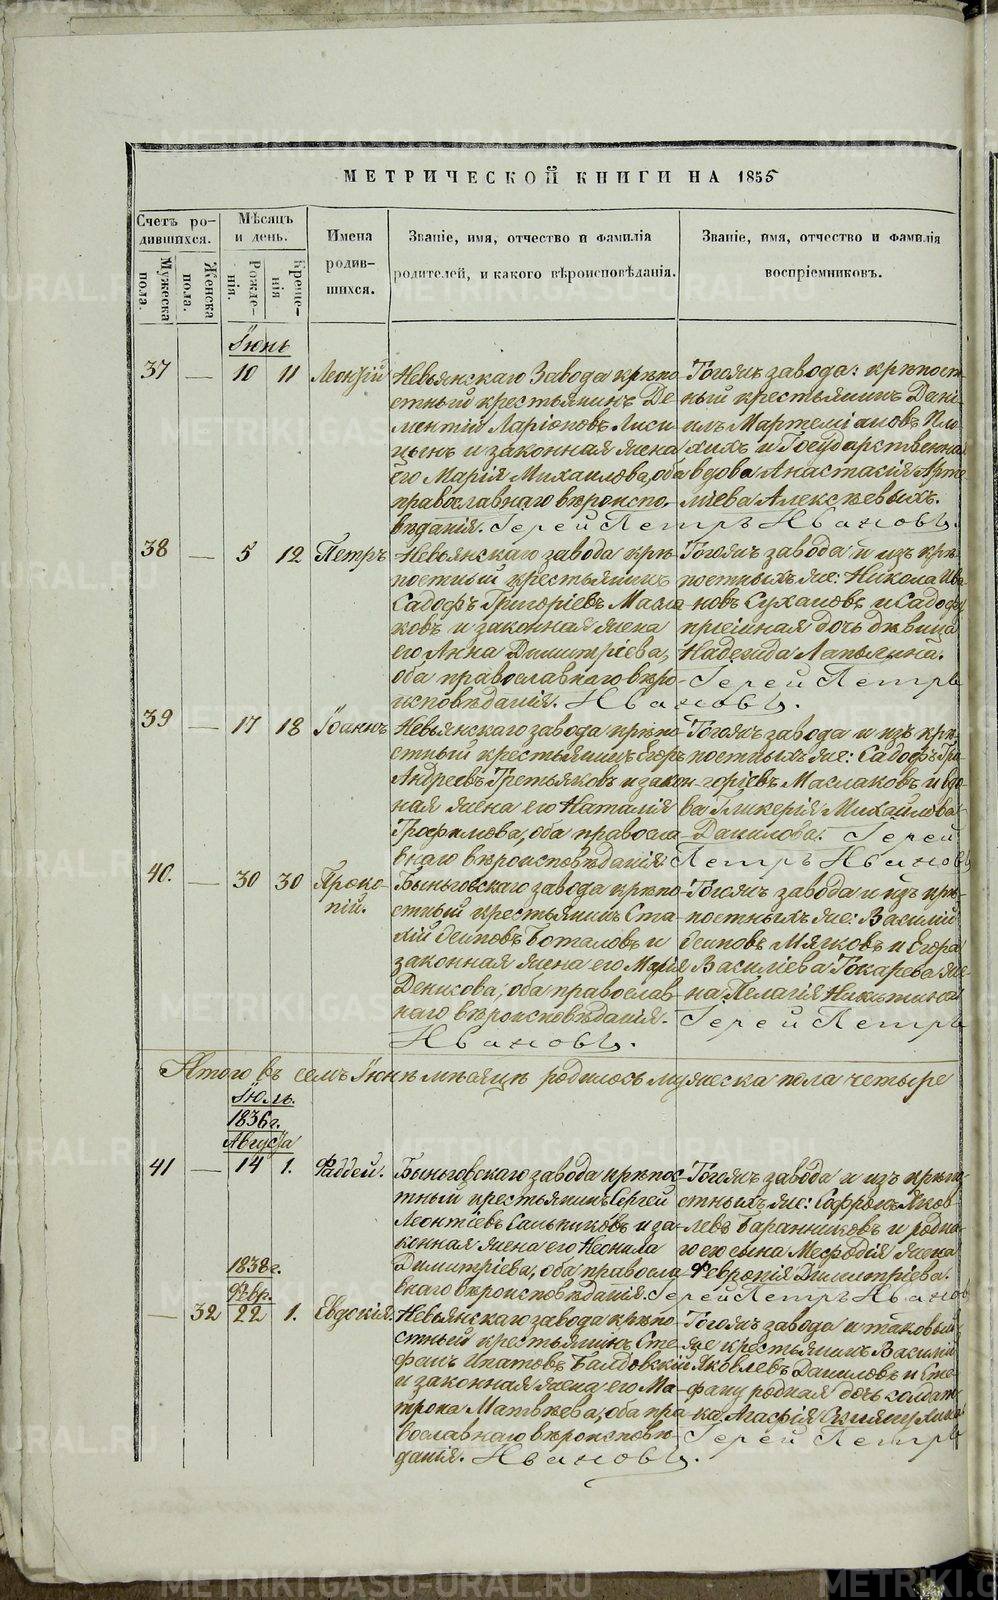 МЕТРИЧЕСКОЙ КНИГИ НА 1855
Счетъ ро-
дившихся.
Мужеска пола.
Женска пола.
Мѣсяцъ
и день.
Рожде-
нія.
Креще-
нія
Имена
родив-
шихся.
Званіе, имя, отчество и фамилія
родителей, и какого вѣроисповѣданія.
Званіе, имя, отчество и фамилія
воспріемниковъ.
Іюнь
37 — 10 11 Леонтій
Невьянскаго Завода крѣпо
стный крестьянинъ Де-
ментій Ларіоновъ Лиси-
цынъ и законная жена
его Марія Михаилова, оба
православнаго вѣроиспо-
вѣданія. Іерей Петръ Ивановъ.
Тогожъ завода: крѣпост-
ный крестьянинъ Дані-
илъ Мартеміановъ Пло-
хихъ и Государственная
вдова Анастасія Арте-
міева Алексѣевыхъ.
38 — 5 12 Петръ
Невьянскаго завода крѣ-
постный крестьянинъ
Садофъ Григоріевъ Масла-
ковъ и законная жена
его Анна Димитріева,
оба православнаго вѣро-
исповѣданія. Ивановъ.
Тогожъ завода и изъ крѣ-
постныхъ же: Никола Ива-
новъ Сухановъ и Садофа
пріемная дочь дѣвица
Надежда Лапыгина.
Іерей Петръ
39 — 17 18 Іоаннъ
Невьянскаго завода крѣпо-
стный крестьянинъ Егоръ
Андреевъ Третьяковъ и закон-
ная жена его Наталія
Трофимова, оба правосла-
внаго вѣроисповѣданія:
Тогожъ завода и изъ крѣ-
постныхъ же: Садофъ Гри-
горіевъ Маслаковъ и вдо-
ва Гликерія Михаилова
Данилова. Іерей
Петръ Ивановъ
40. — 30 30 Проко-
пій.
Быньговскаго завода крѣпо-
стный крестьянинъ Ста-
хій Осиповъ Боталовъ и
законная жена его Марія
Денисова, оба православ-
наго вѣроисповѣданія.
Ивановъ.
Тогожъ завода и изъ крѣ-
постныхъ же: Василій
Осиповъ Мягковъ и Егора
Василіева Токарева же-
на Пелагія Никитина
Іерей Петръ
Итого въ семъ Іюнѣ мѣсяцѣ родилось мужеска пола четыре
Іюль.
1836г.
Августа
41 — 14 1. Фаддей.
Быньговскаго завода крѣпос-
тный крестьянинъ Сергей
Леонтіевъ Сальниковъ и за-
конная жена его Неонила
Димитріева, оба правосла-
внаго вѣроисповѣданія. Іерей Петръ Ивановъ
Тогожъ завода и изъ крѣпо-
стныхъ же: Софронъ Яков-
левъ Баранниковъ и родна-
го его сына Мефодія жена
Феврония Димитріева.
1838г.
Февр.
— 32 22 1. Евдокія.
Невьянскаго завода крѣпо-
стный крестьянинъ Сте-
фанъ Ипатовъ Балдовскій
и законная жена его Ма-
трона Матвѣева, оба пра-
вославнаго вѣроисповѣ-
данія. Ивановъ.
Тогожъ завода и таковый
же крестьянинъ Василій
Яковлевъ Даниловъ и Сте-
фану родная дочь солдат-
ка Агафія
Іерей Петръ
METRIKI.GASO-URAL.RU